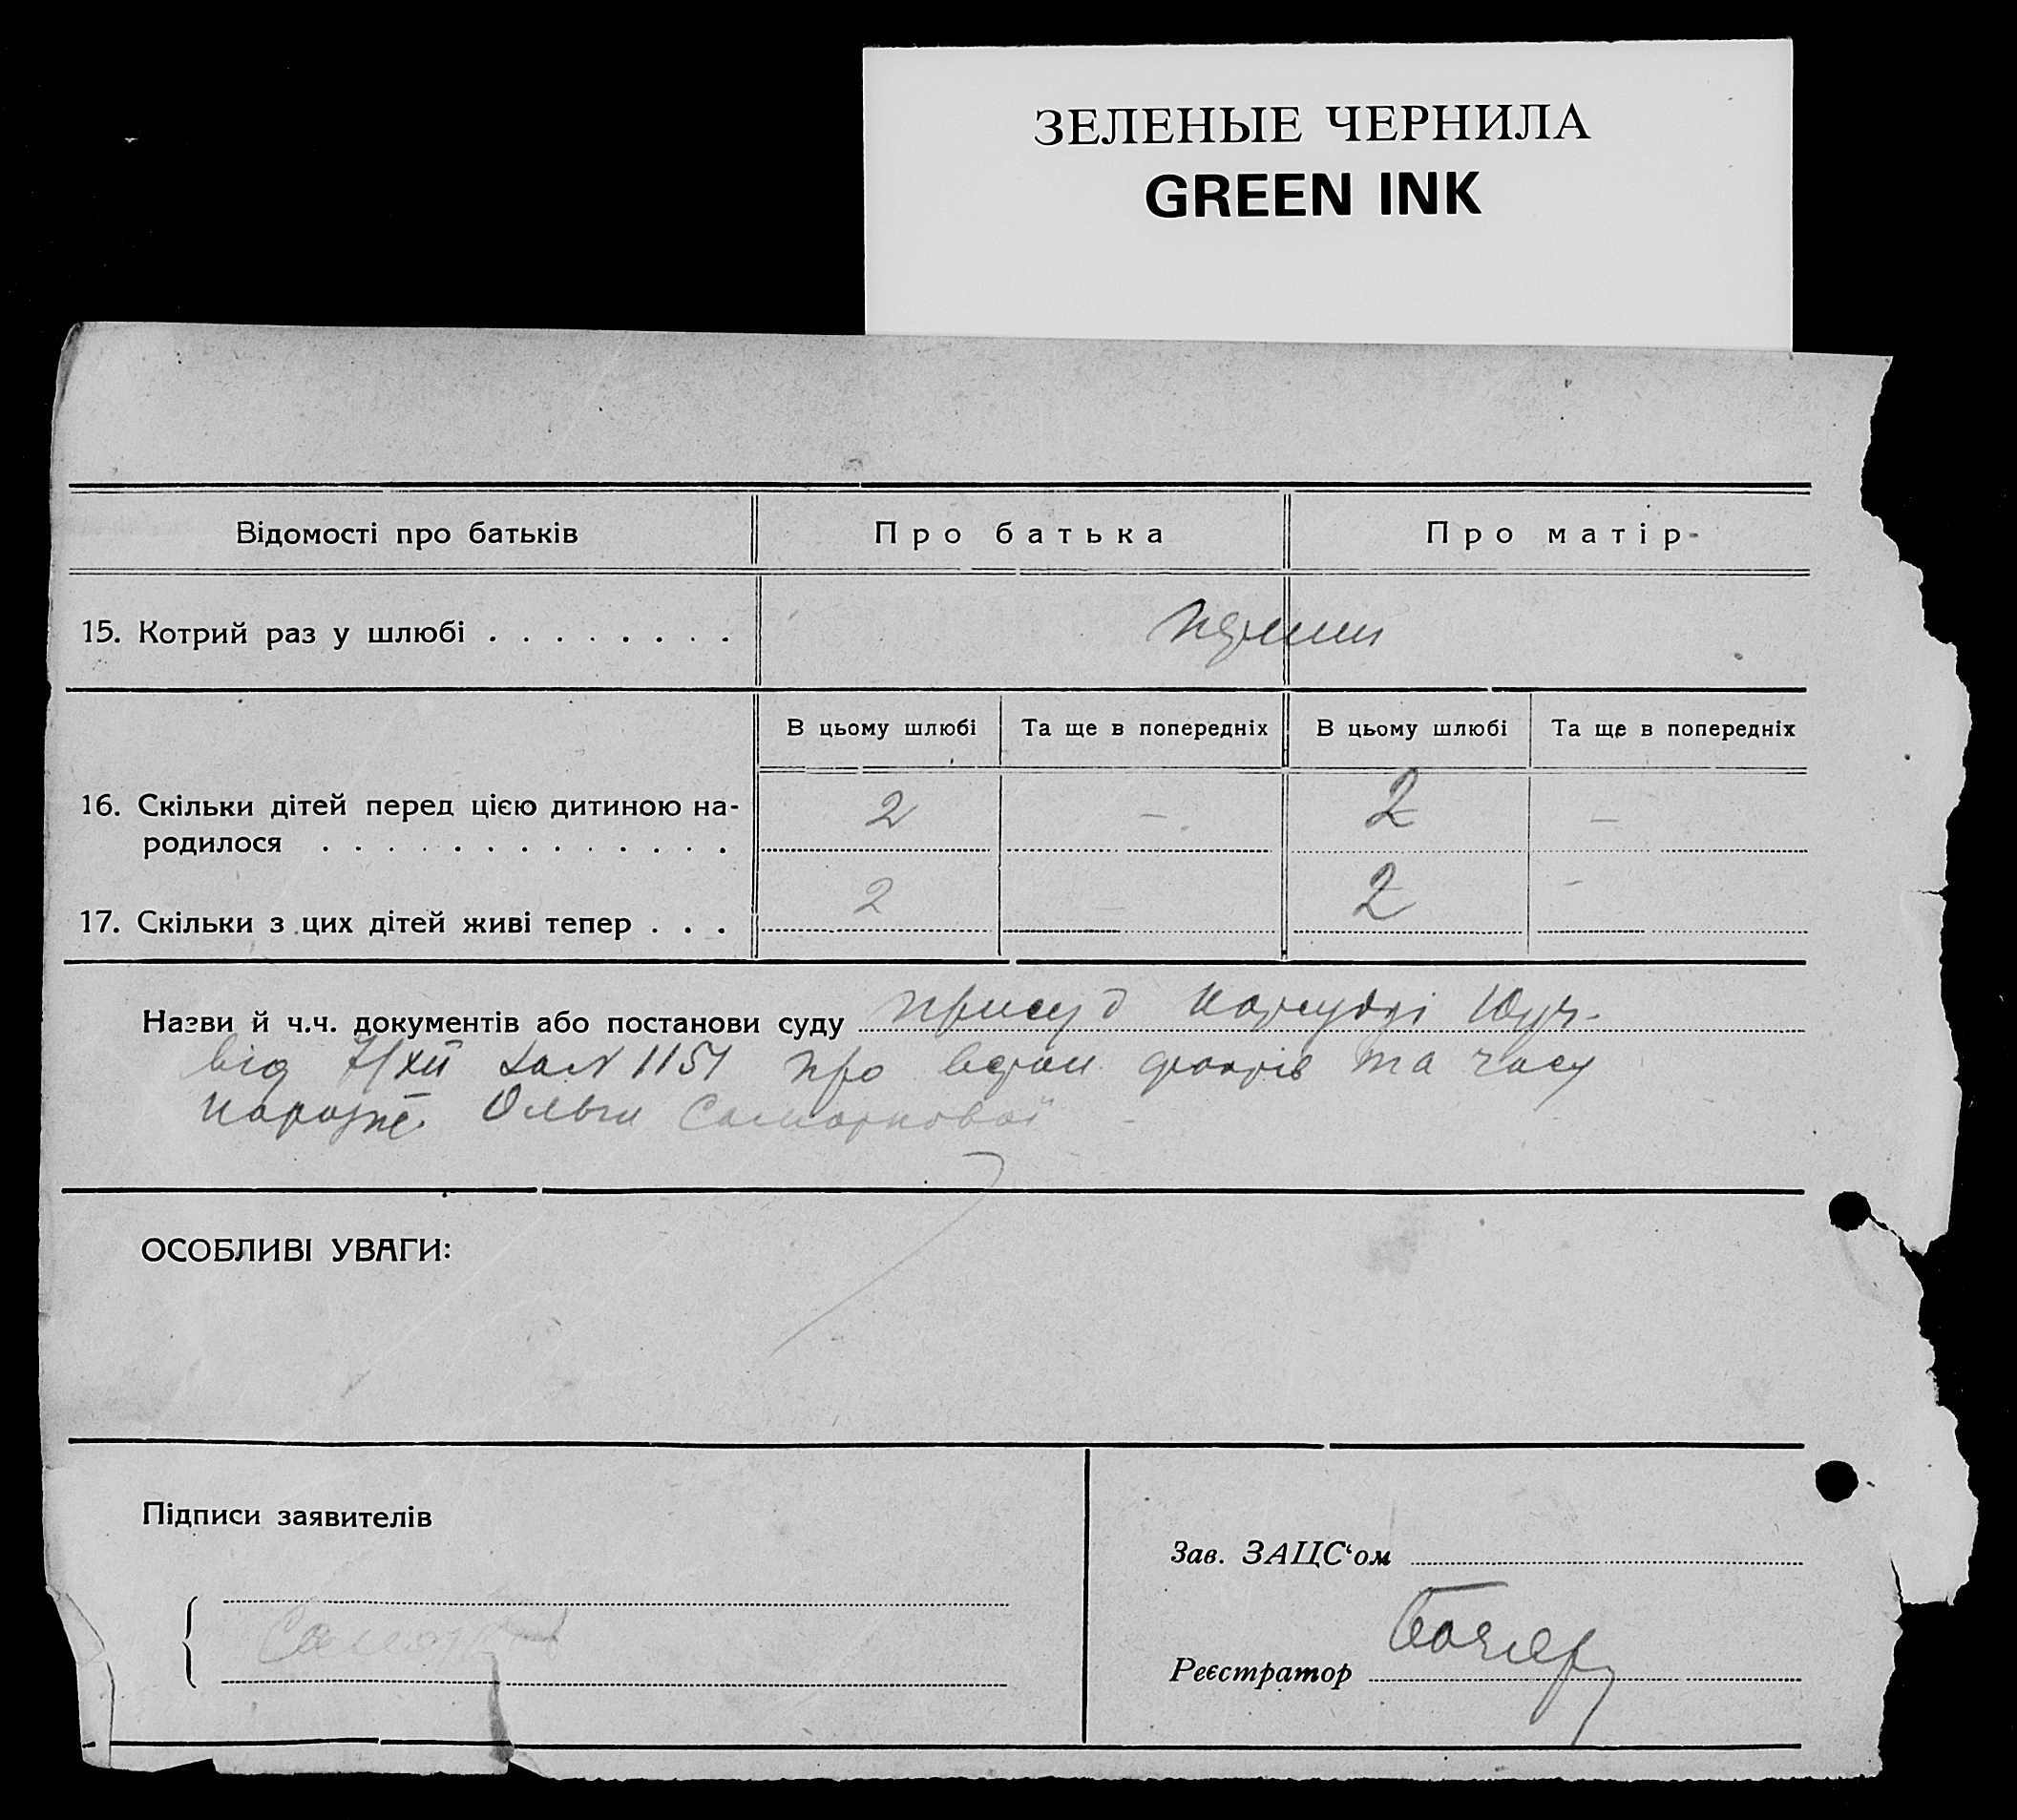 ЗЕЛЕНЫЕ ЧЕРНИЛА
GREEN INK
Відомості про батьків Про батька Про матір
15. Котрий раз у шлюбі . . . . . . . .
В цьому шлюбі Та ще в попередніх В цьому шлюбі Та ще в попередніх
16. Скільки дітей перед цією дитиною на- 2 — 2 —
родилося . . . . . . . . . . . . .
17. Скільки з цих дітей живі тепер . . . 2 — 2 —
Назви й ч.ч. документів або постанови суду присуд
від 7/XII за N 1151 про та часу
Ольги
ОСОБЛИВІ УВАГИ:
Підписи заявителів
Зав. ЗАЦС‘ом
Реєстратор